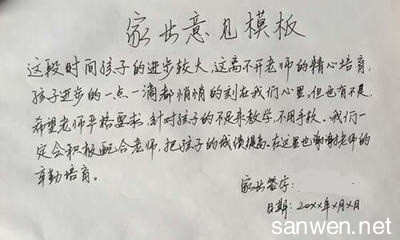 家长意见模板
这段时间孩子的进步较大,这离不开老师的精心培育,
孩子进步的一点一滴都悄悄的刻在我们心里,但也有不足,
希望老师严格要求,针对孩子的不足来教学,不用手软,我们一
定会积极配合老师,把孩子的成绩提高,在这里也谢谢老师的
辛勤培育。
家长签字:
日期:20xx年x月x日
sanwen.net